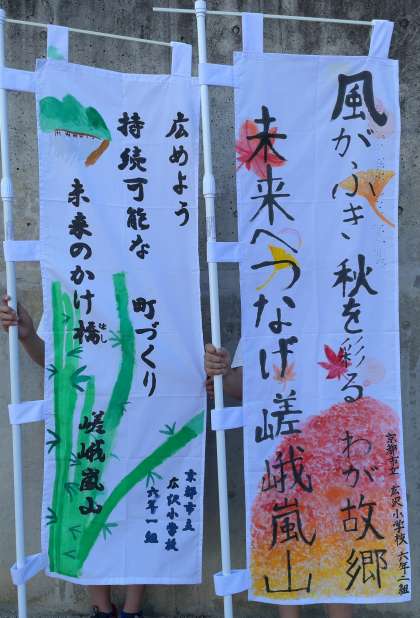 風がふき 秋を彩る わが故郷
未来へつなげ 嵯峨嵐山
京都市立 広沢小学校 六年二組
広めよう
持続可能な 町づくり
未来のかけ橋 嵯峨嵐山
はし
京都市立
広沢小学校
六年一組